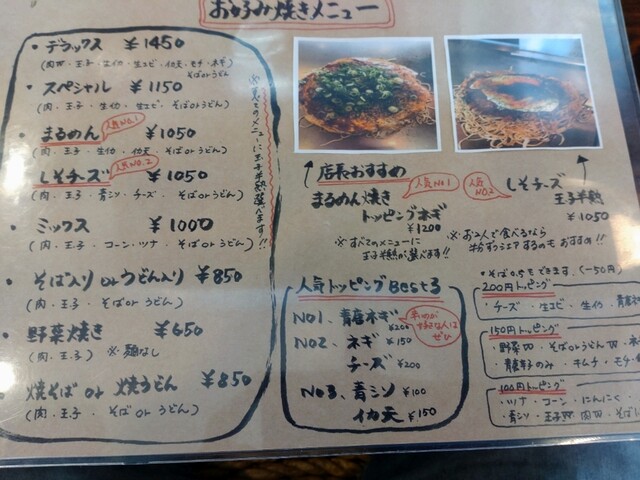 お好み焼きメニュー
・デラックス ¥1450
(肉W・玉子・生イカ・生エビ・イカ天・モチ・ネギ
そばorうどん
・スペシャル ¥1150
(肉・玉子・生イカ・生エビ・そばorうどん)
・まるめん 人気No.1 ¥1050
(肉・玉子・生イカ・イカ天・そばorうどん)
・しそチーズ 人気No.2 ¥1050
(肉・玉子・青ジソ・チーズ・そばorうどん)
・ミックス ¥1000
(肉・玉子・コーン・ツナ・そばorうどん)
・そば入りorうどん入り ¥850
(肉・玉子・そばorうどん)
・野菜焼き ¥650
(肉・玉子) ※麺なし
・焼そばor焼うどん ¥850
(肉・玉子・そばorうどん)
※すべてのメニューに玉子半熟選べます!!
店長おすすめ
まるめん焼き 人気No1
トッピングネギ
¥1200
※すべてのメニューに
玉子半熟が選べます!!
人気No.2 しそチーズ
玉子半熟
¥1050
※お2人で食べるなら
おすすめ!!
・そば0.5もできます。(-50円)
人気トッピングBest3
No1、青唐ネギ ¥200
辛いのが好きな人はぜひ
No2、ネギ ¥150
チーズ ¥200
No3、青ジソ ¥100
イカ天 ¥150
200円トッピング
・チーズ・生エビ・生イカ・青唐
150円トッピング
・野菜W・そばorうどんW・ネ
・キムチ・モチ
100円トッピング
・ツナ・コーン・にんにく
・青ジソ・玉子W・肉W・そば